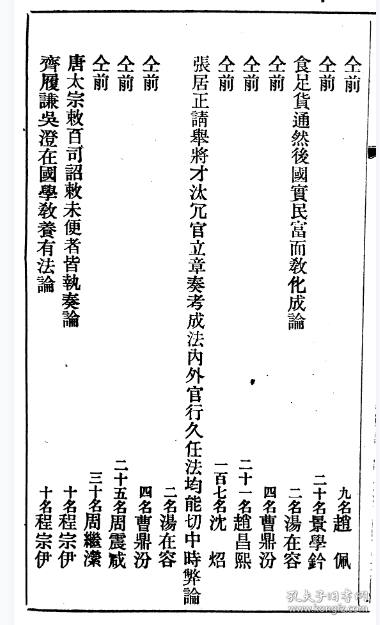 仝前　九名趙　佩
仝前　二十名景學鈐
食足貨通然後國實民富而敎化成論　二名湯在容
仝前　四名曹鼎汾
仝前　二十一名趙昌熙
仝前　一百七名沈　炤
張居正請舉將才汰冗官立章奏考成法內外官行久任法均能切中時弊論
二名湯在容
仝前　四名曹鼎汾
仝前　二十五名周震
仝前　三十名周繼
唐太宗敕百司詔敕未便者皆執奏論　十名程宗伊
齊履謙吳澄在國學敎養有法論　十名程宗伊
孔夫子旧书网